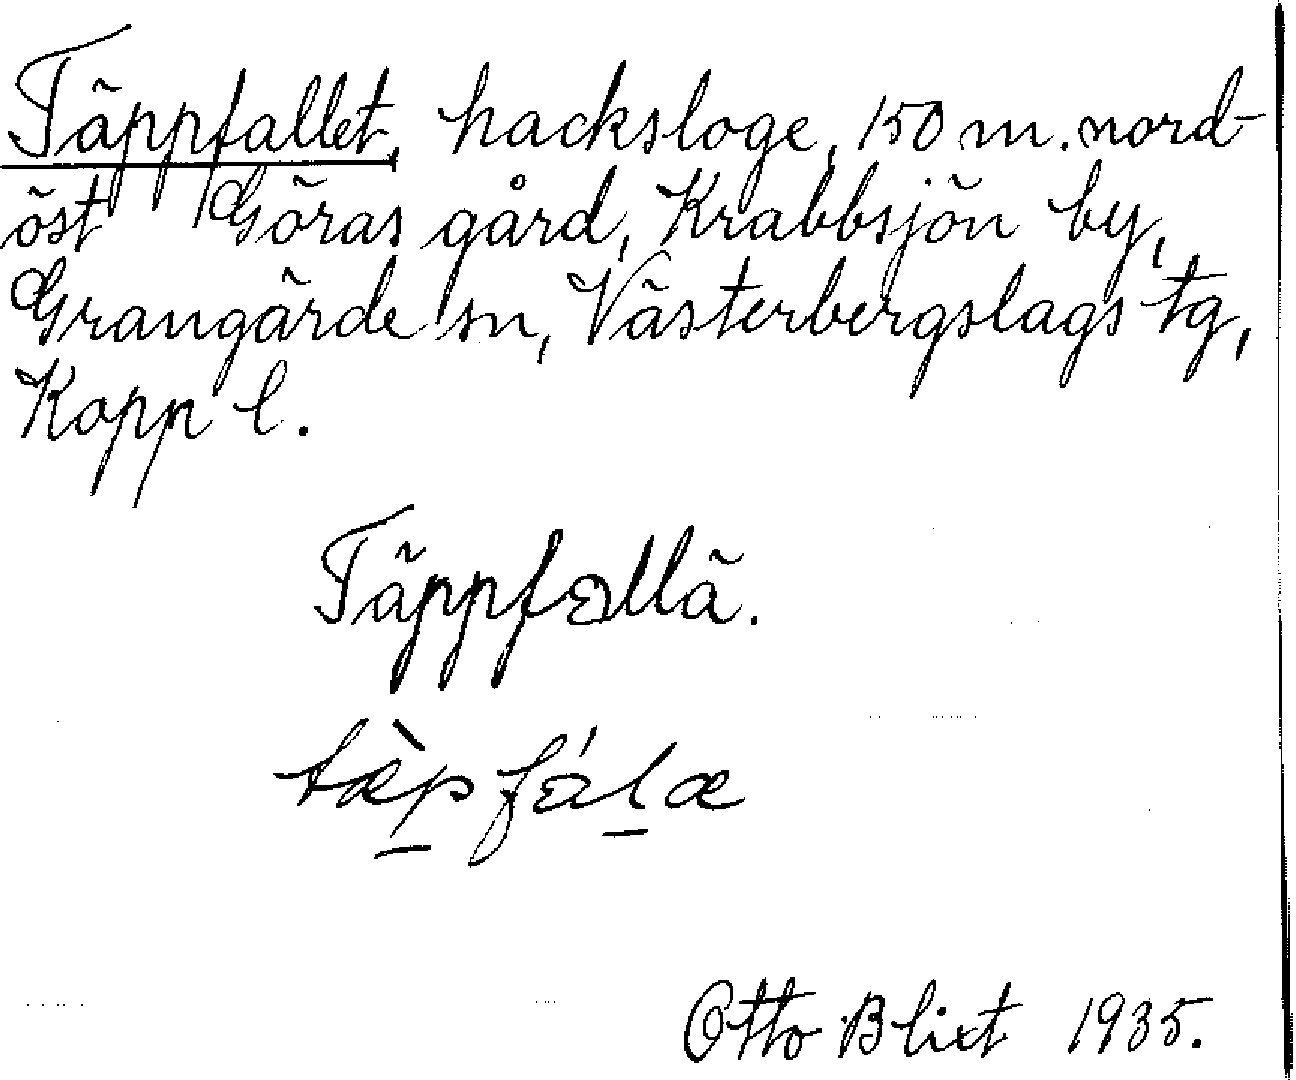 Täppfallet, hacksloge, 150 m. nord-
öst Göras gård, Krabbsjön by,
Grangärde sn, Västerbergslags tg,
Kopp l.
Täppfallä.
tæ̀pfálæ
Otto Blixt 1935.